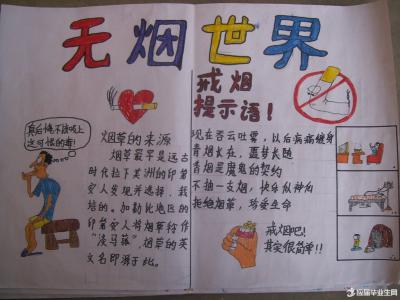 无烟世界
真后悔不该吸上
这可恨的毒!
烟草的来源
烟草最早是远古
时代拉丁美洲的印第
安人发现并选择、栽
培的。加勒比地区的
印第安人将烟草称作
“淡马菰”,烟草的英
文名即源于此。
戒烟
提示语!
现在吞云吐雾,以后病痛缠身
青烟长在,噩梦长随
香烟是魔鬼的契约
不抽一支烟,快乐似神仙
拒绝烟草,珍爱生命
戒烟吧!
其实很简单!!
应届毕业生网